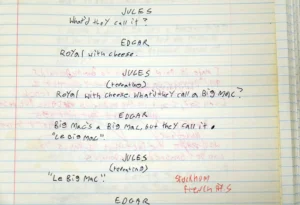 JULES
What'd they call it?
EDGAR
Royal with cheese.
JULES
(repeating)
Royal with cheese. What'd they call a Big Mac?
EDGAR
Big Mac's a Big Mac, but they call it
"Le Big Mac".
JULES
(repeating)
"Le Big Mac".
EDGAR